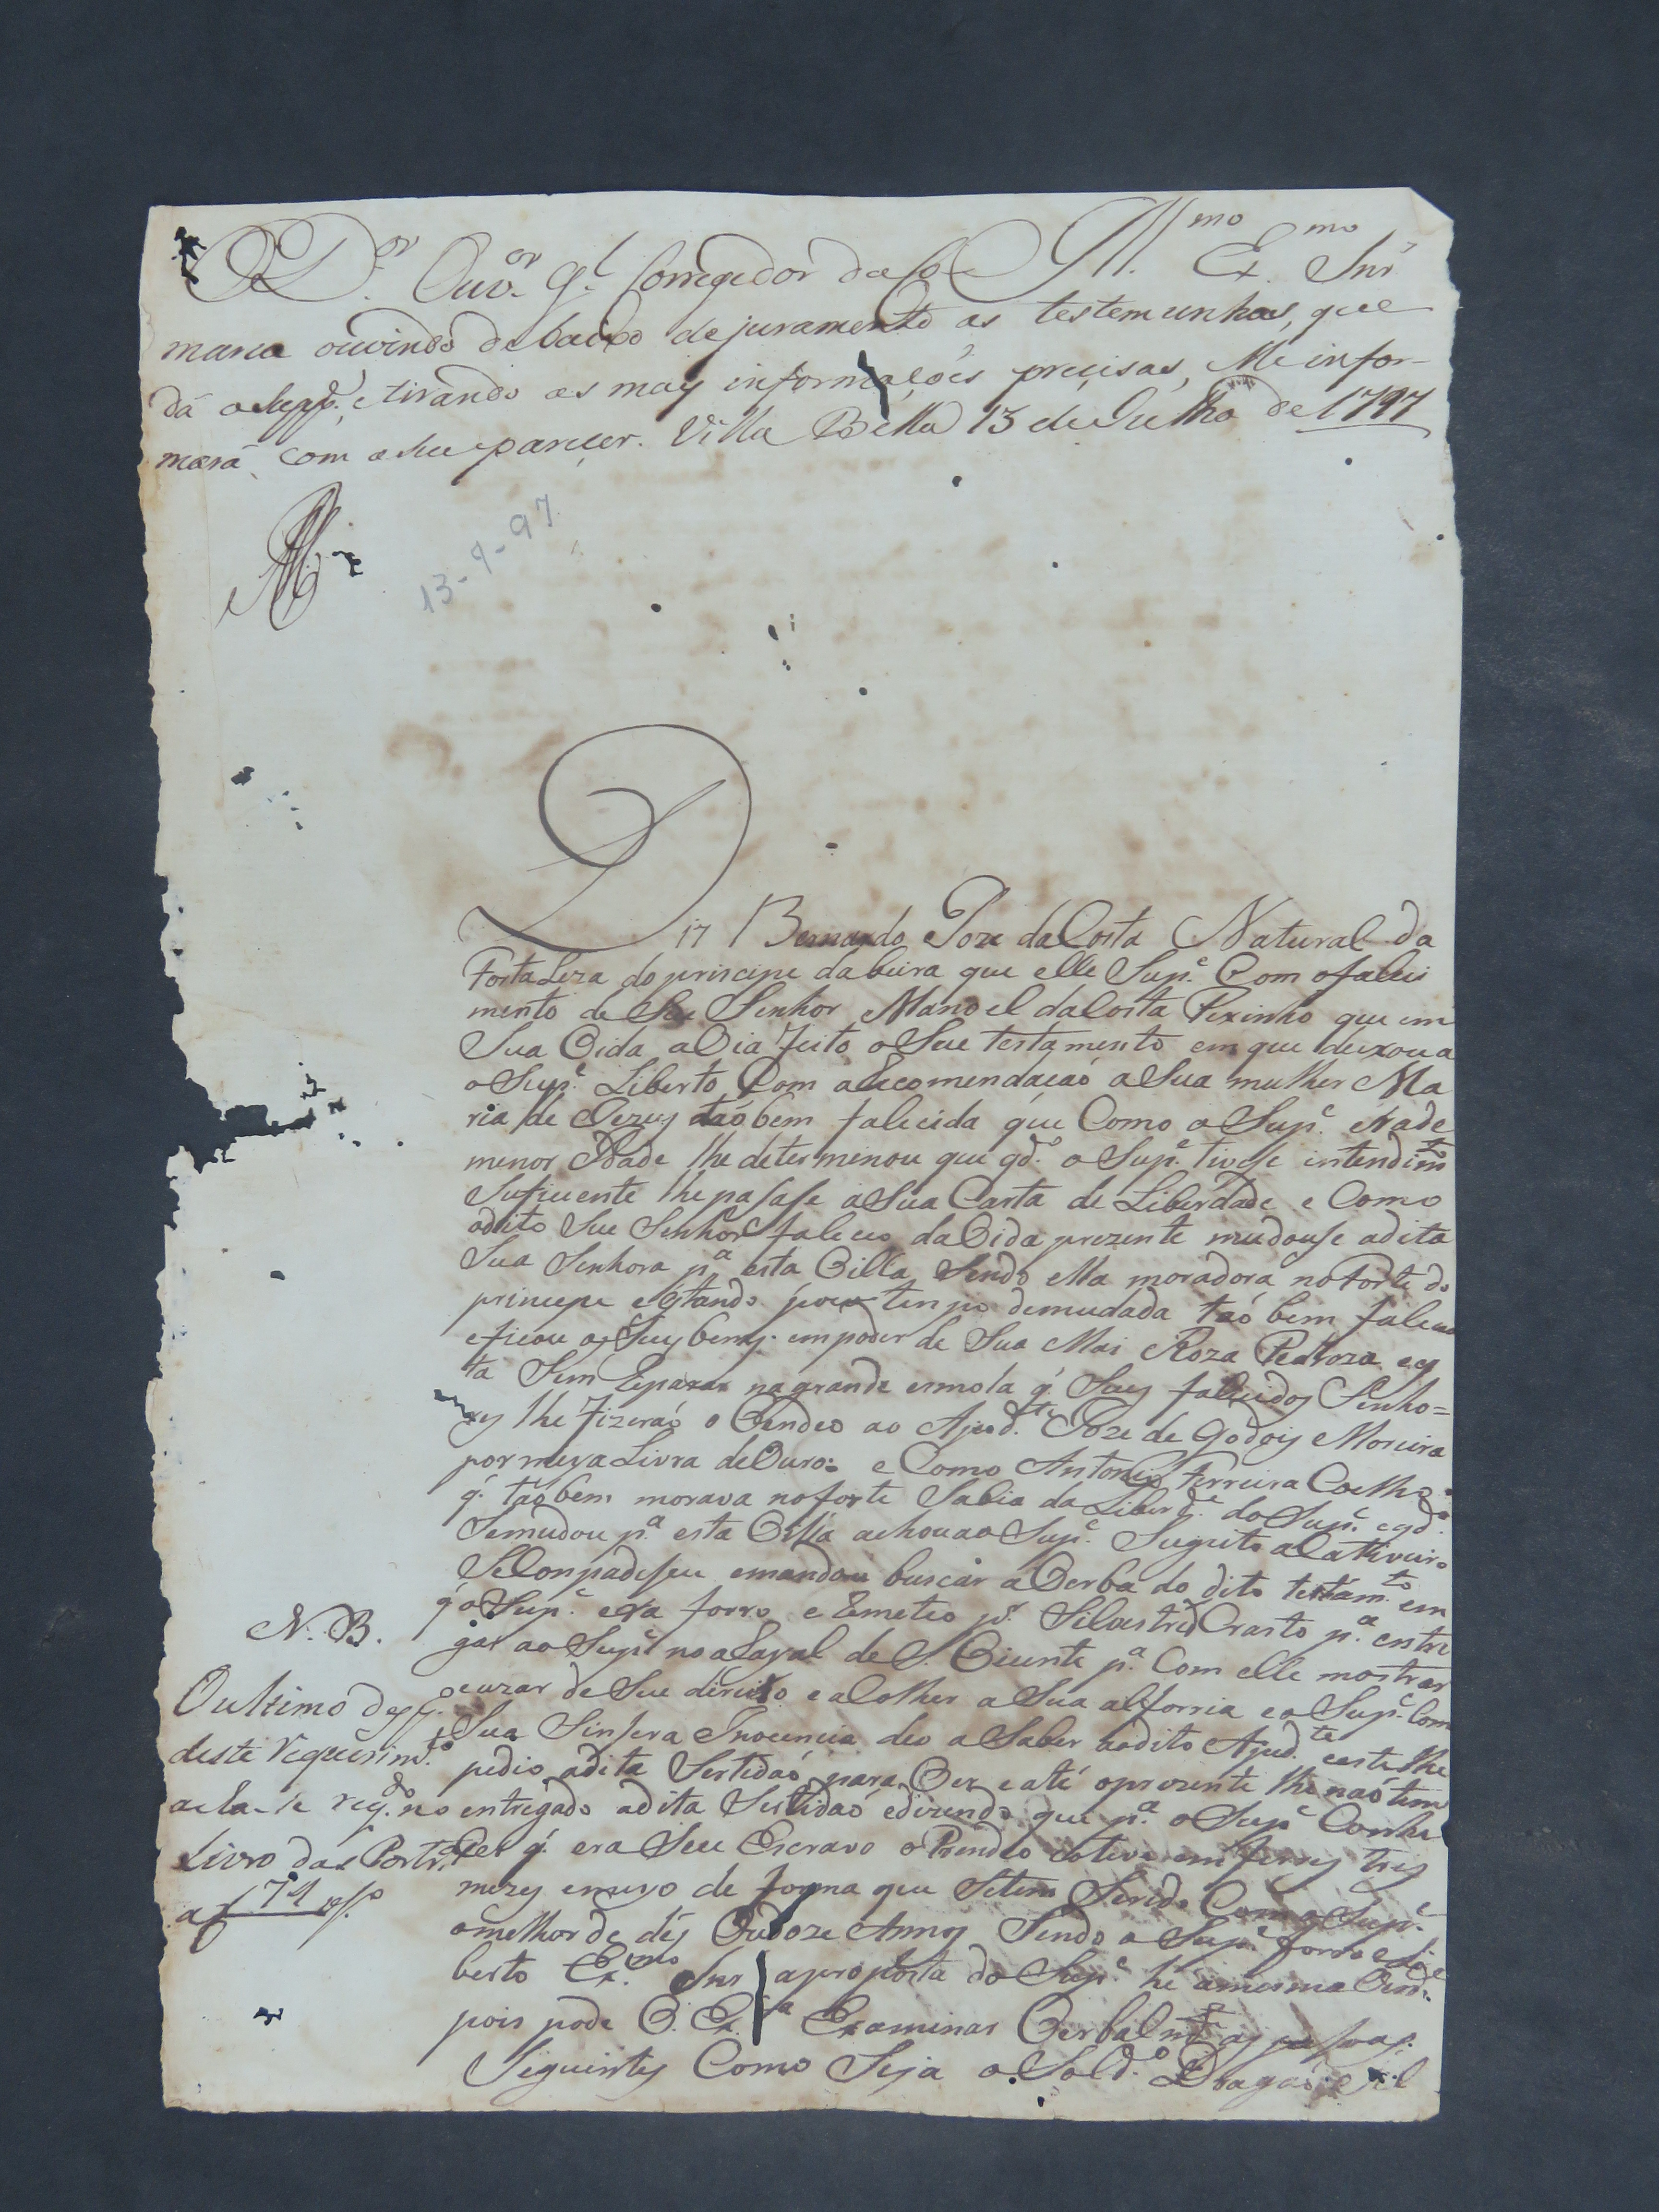 O D.or Ouv.or G.l Corregedor da Co-
Ill.mo Ex.mo Snr
marca ouvindo debaixo de juramento as testemunhas, que
dá o Supp.e, e tirando as mais informações precisas, Me infor-
mará com o seu parecer. Villa Bella 13 de Julho de 1797
13-9-97
Diz Bernardo Joze da Costa Natural da
Fortaleza do principe da beira que elle Sup.e Com o faleci
mento de Seu Senhor Manoel da Costa Pexinho que em
Sua Vida avia feito o Seu testamento em que deixou a
o Sup.e Liberto Com a Recomendaçaõ a Sua mulher Ma
ria de Jezus taõ bem falecida que Como o Sup.e Era de
menor Idade lhe determinou que qd.o o Sup.e tivese intendim.to
Suficuente lhe pasase a Sua Carta de Liberdade e Como
o dito Seu Senhor faleceo da Vida prezente mudouse a dita
Sua Senhora p.a esta Villa Sendo ella moradora no Forte do
principe e Estando pouco tempo demudada taõ bem faleceo
e ficou os Seus bens em poder de Sua Mai Roza Pedroza e es
ta Sem Reparar na grande esmola q. Seus falecidos Senho=
res lhe fizeraõ o Vendeo ao Ajud.te Joze de Godois Moreira
por meya Livra de Ouro: e Como Antonio Ferreira Coelho
q. taõ bem morava no forte Sabia da Liberd.e do Sup.e e qd.o
Semudou p.a esta Villa achou ao Sup.e Sugeito a Cativeiro
Se Conpadeseu e mandou buscar a Verba do dito testam.to em
q. o Sup.e era forro e Remeteo p.r Silvestre Crasto p.a entre
gar ao Sup.e no aRayal de S. Vicente p.a Com elle mostrar
e uzar de Seu direito e a Colher a Sua alforria e o Sup.e Com
Sua Sinsera Inocencia deo a Saber ao dito Ajud.te e este lhe
pedio a dita Sertidaõ para Ver e até o prezente lhe naõ tem
entregado a dita Sertidaõ e dizendo que p.a o Sup.e Conhe
Ser q. era Seu Escravo o Prendeo e o teve em ferros tres
mezes e meyo de forma que Setem Servido Com o Sup.e
o melhor de des Ou doze Annos Sendo o Sup.e forro e Li
berto Ex.mo Snr a proposta do Sup.e he a mesma Verd.e
pois pode V. Ex.a Examinar Verbalm.te as pesoas
Seguintes Como Seja o Sold.o Dragaõ Sil
N. B.
O ultimo desp.o
deste requerim.to
acha-se reg.do no
Livro das Portr.as
a f 74 vs.o